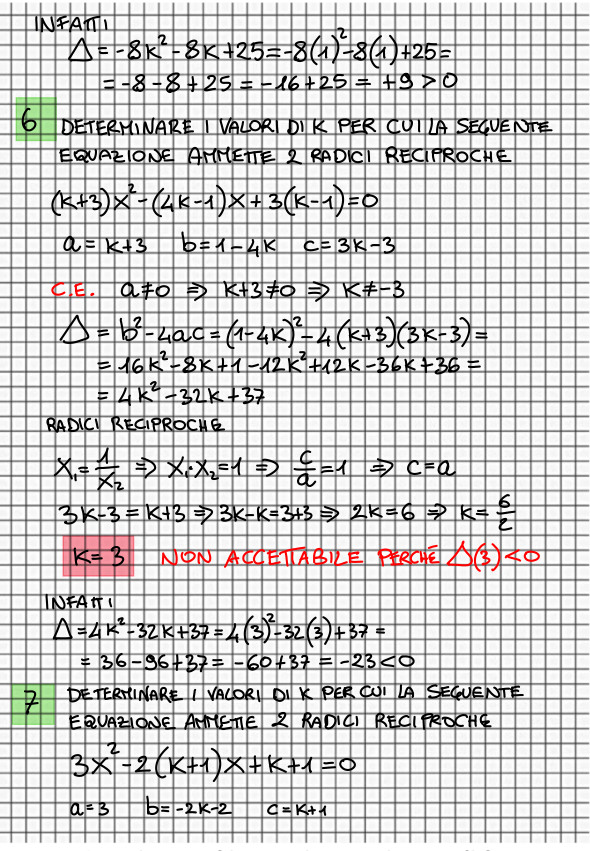 INFATTI
Δ = -8k²-8k+25 = -8(1)²-8(1)+25 =
= -8-8+25 = -16+25 = +9 > 0
6 DETERMINARE I VALORI DI K PER CUI LA SEGUENTE
EQUAZIONE AMMETTE 2 RADICI RECIPROCHE
(k+3)x²-(4k-1)x+3(k-1)=0
a=k+3 b=1-4k c=3k-3
C.E. a≠0 ⇒ k+3≠0 ⇒ k≠-3
Δ = b²-4ac = (1-4k)²-4(k+3)(3k-3) =
= 16k²-8k+1-12k²+12k-36k+36 =
= 4k²-32k+37
RADICI RECIPROCHE
x₁=1/x₂ ⇒ x₁·x₂=1 ⇒ c/a=1 ⇒ c=a
3k-3=k+3 ⇒ 3k-k=3+3 ⇒ 2k=6 ⇒ k=6/2
k=3 NON ACCETTABILE PERCHÉ Δ(3)<0
INFATTI
Δ=4k²-32k+37=4(3)²-32(3)+37=
= 36-96+37 = -60+37 = -23<0
7 DETERMINARE I VALORI DI K PER CUI LA SEGUENTE
EQUAZIONE AMMETTE 2 RADICI RECIPROCHE
3x²-2(k+1)x+k+1=0
a=3 b=-2k-2 c=k+1